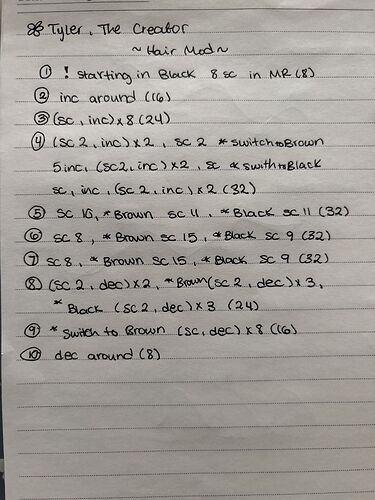 Tyler, The Creator
~ Hair Mod ~
① ! Starting in Black 8 sc in MR (8)
② inc around (16)
③ (sc, inc) x 8 (24)
④ (sc 2, inc) x 2, sc 2 * switch to Brown
5 inc, (sc 2, inc) x 2, sc * swith to Black
sc, inc, (sc 2, inc) x 2 (32)
⑤ sc 10, * Brown sc 11, * Black sc 11 (32)
⑥ sc 8, * Brown sc 15, * Black sc 9 (32)
⑦ sc 8, * Brown sc 15, * Black sc 9 (32)
⑧ (sc 2, dec) x 2, * Brown (sc 2, dec) x 3,
* Black (sc 2, dec) x 3 (24)
⑨ * Switch to Brown (sc, dec) x 8 (16)
⑩ dec around (8)